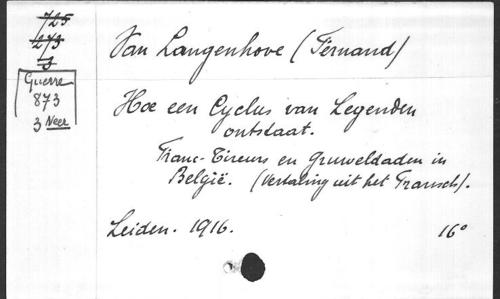 725
273
3
Guerre
873
3 Neer
Van Langenhove (Fernand)
Hoe een Cyclus van Legenden
ontstaat.
Franc-Tireurs en gruweldaden in
België. (Vertaling uit het Fransch).
Leiden. 1916. 16°